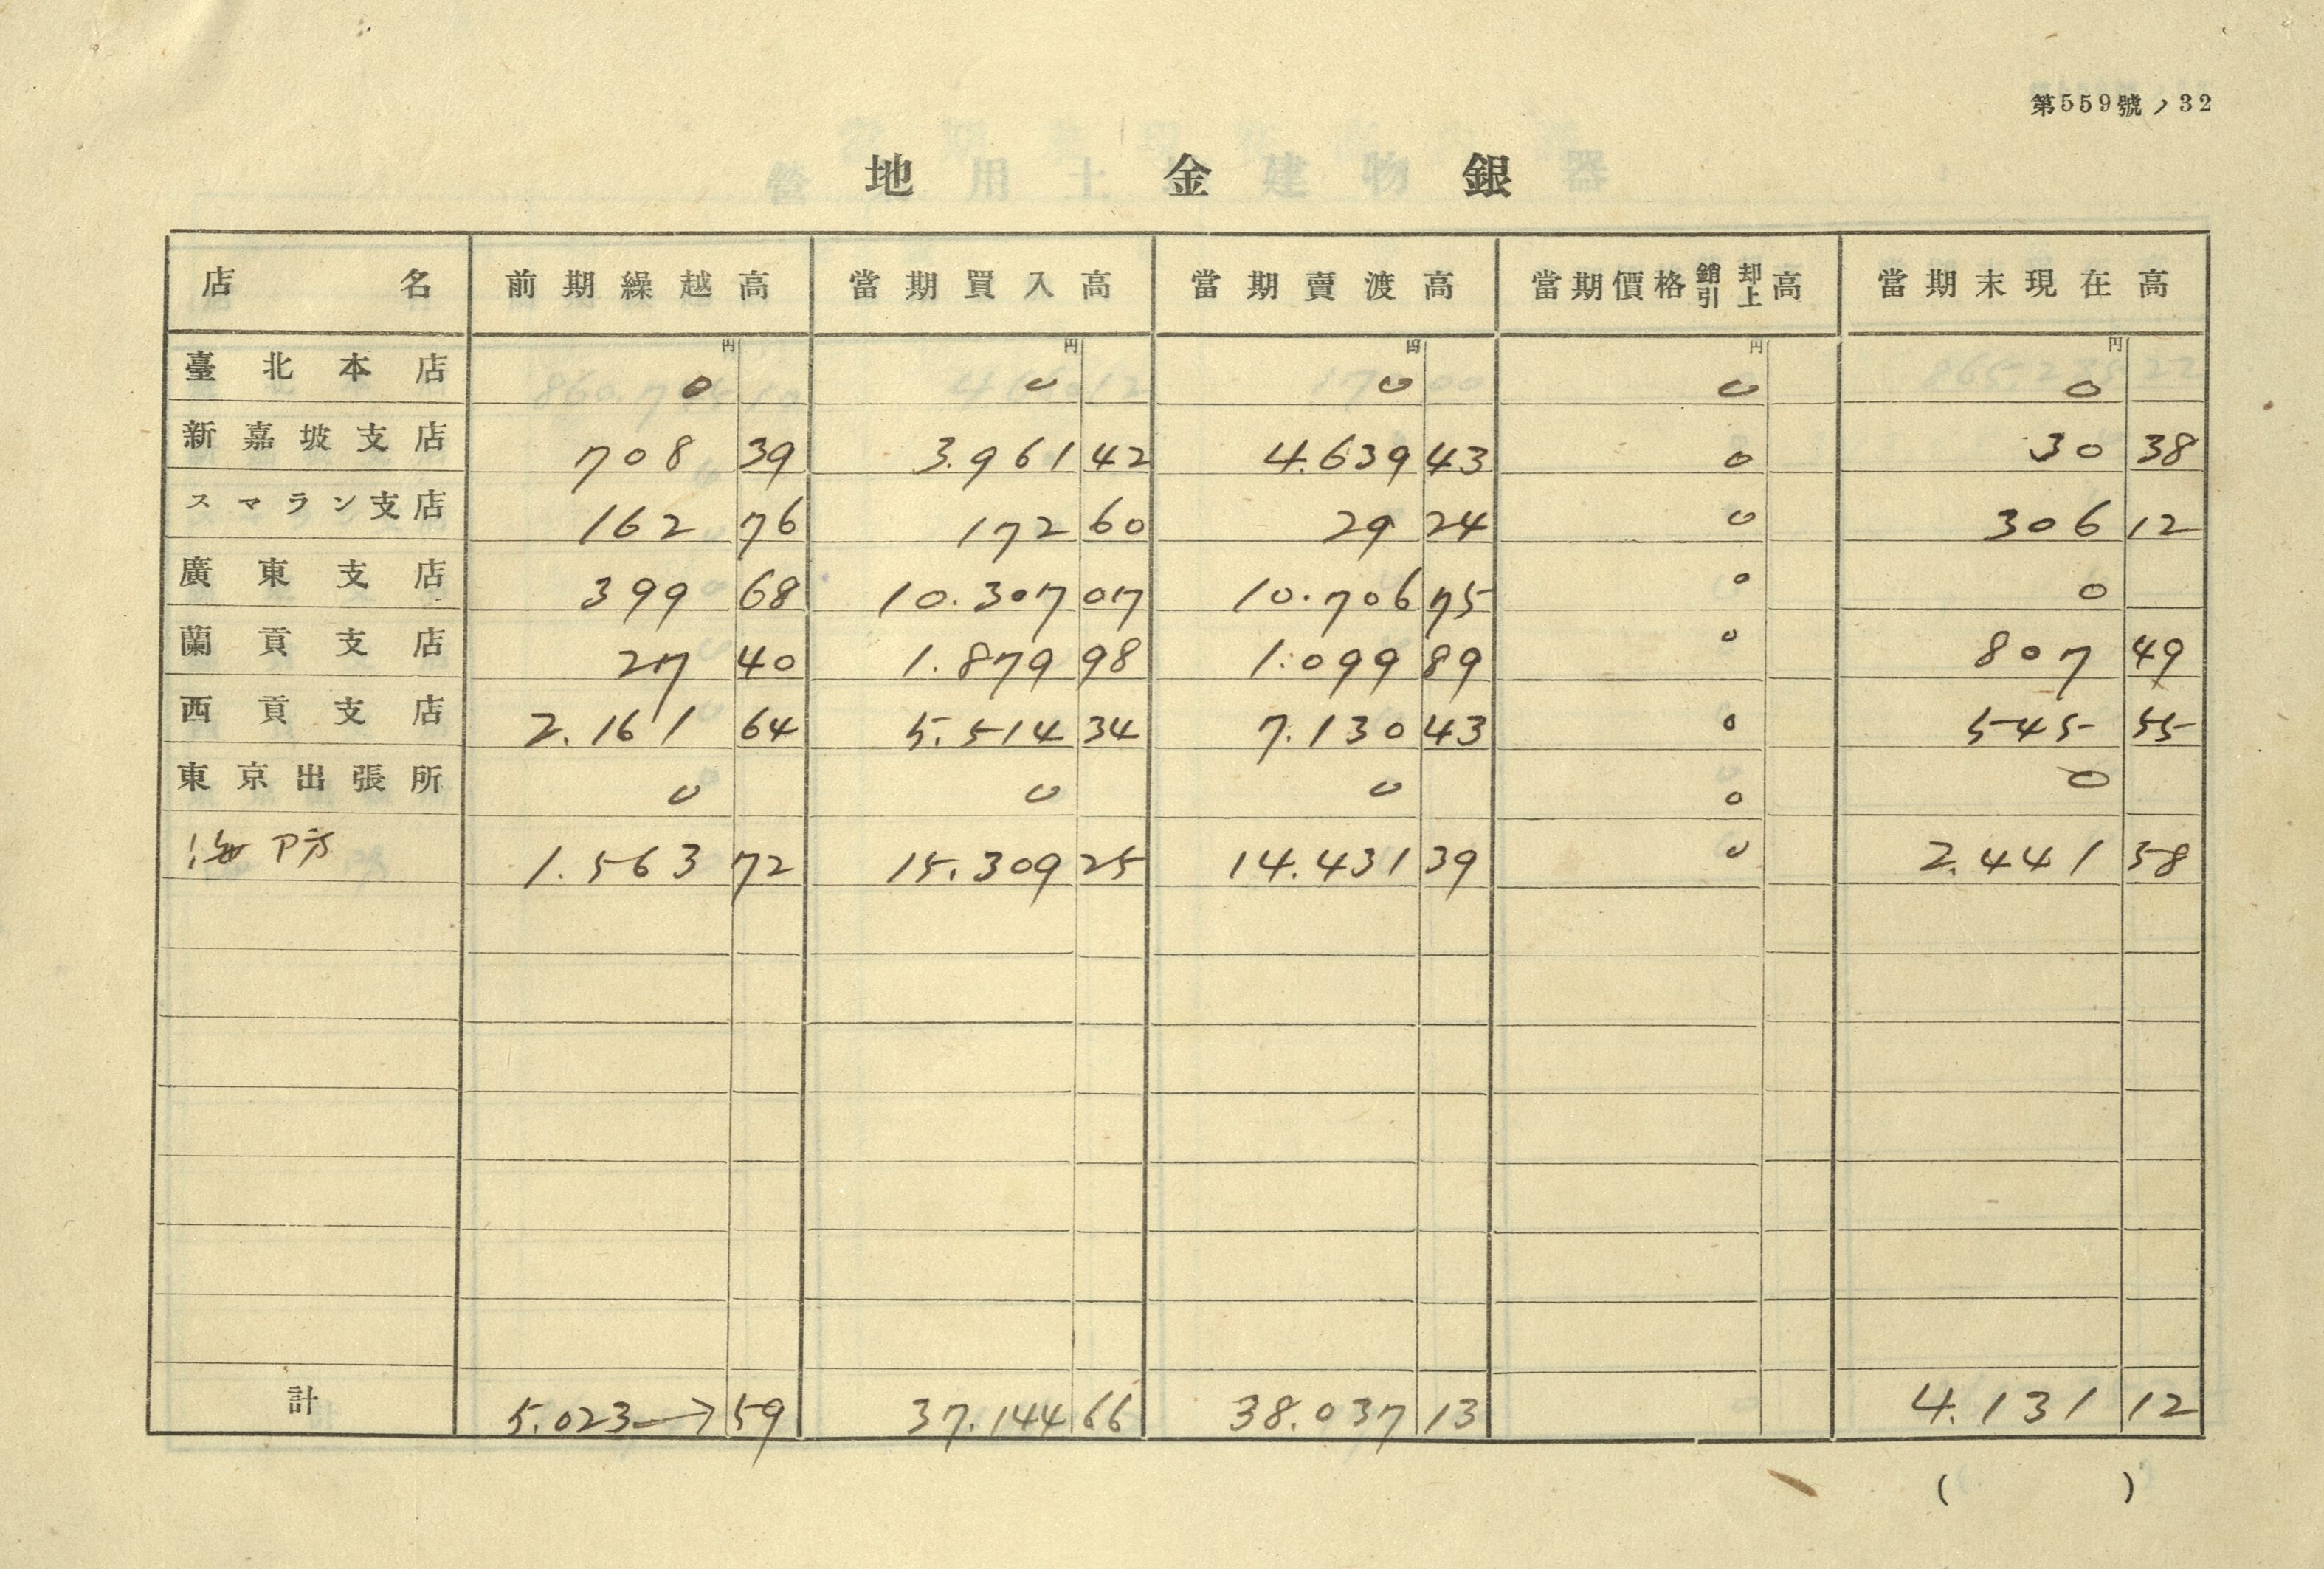 第559號ノ32
地金銀
店名 前期繰越高 當期買入高 當期賣渡高 當期價格銷却引上高 當期末現在高
円 円 円 円 円
臺北本店 0 0 0 0 0
新嘉坡支店 708 39 3.961 42 4.639 43 0 30 38
スマラン支店 162 76 172 60 29 24 0 306 12
廣東支店 399 68 10.307 07 10.706 75 0 0
蘭貢支店 27 40 1.879 98 1.099 89 0 807 49
西貢支店 2.161 64 5.514 34 7.130 43 0 545 55
東京出張所 0 0 0 0 0
海防 1.563 72 15.309 25 14.431 39 0 2.441 58
計 5.023 59 37.144 66 38.037 13 4.131 12
( )